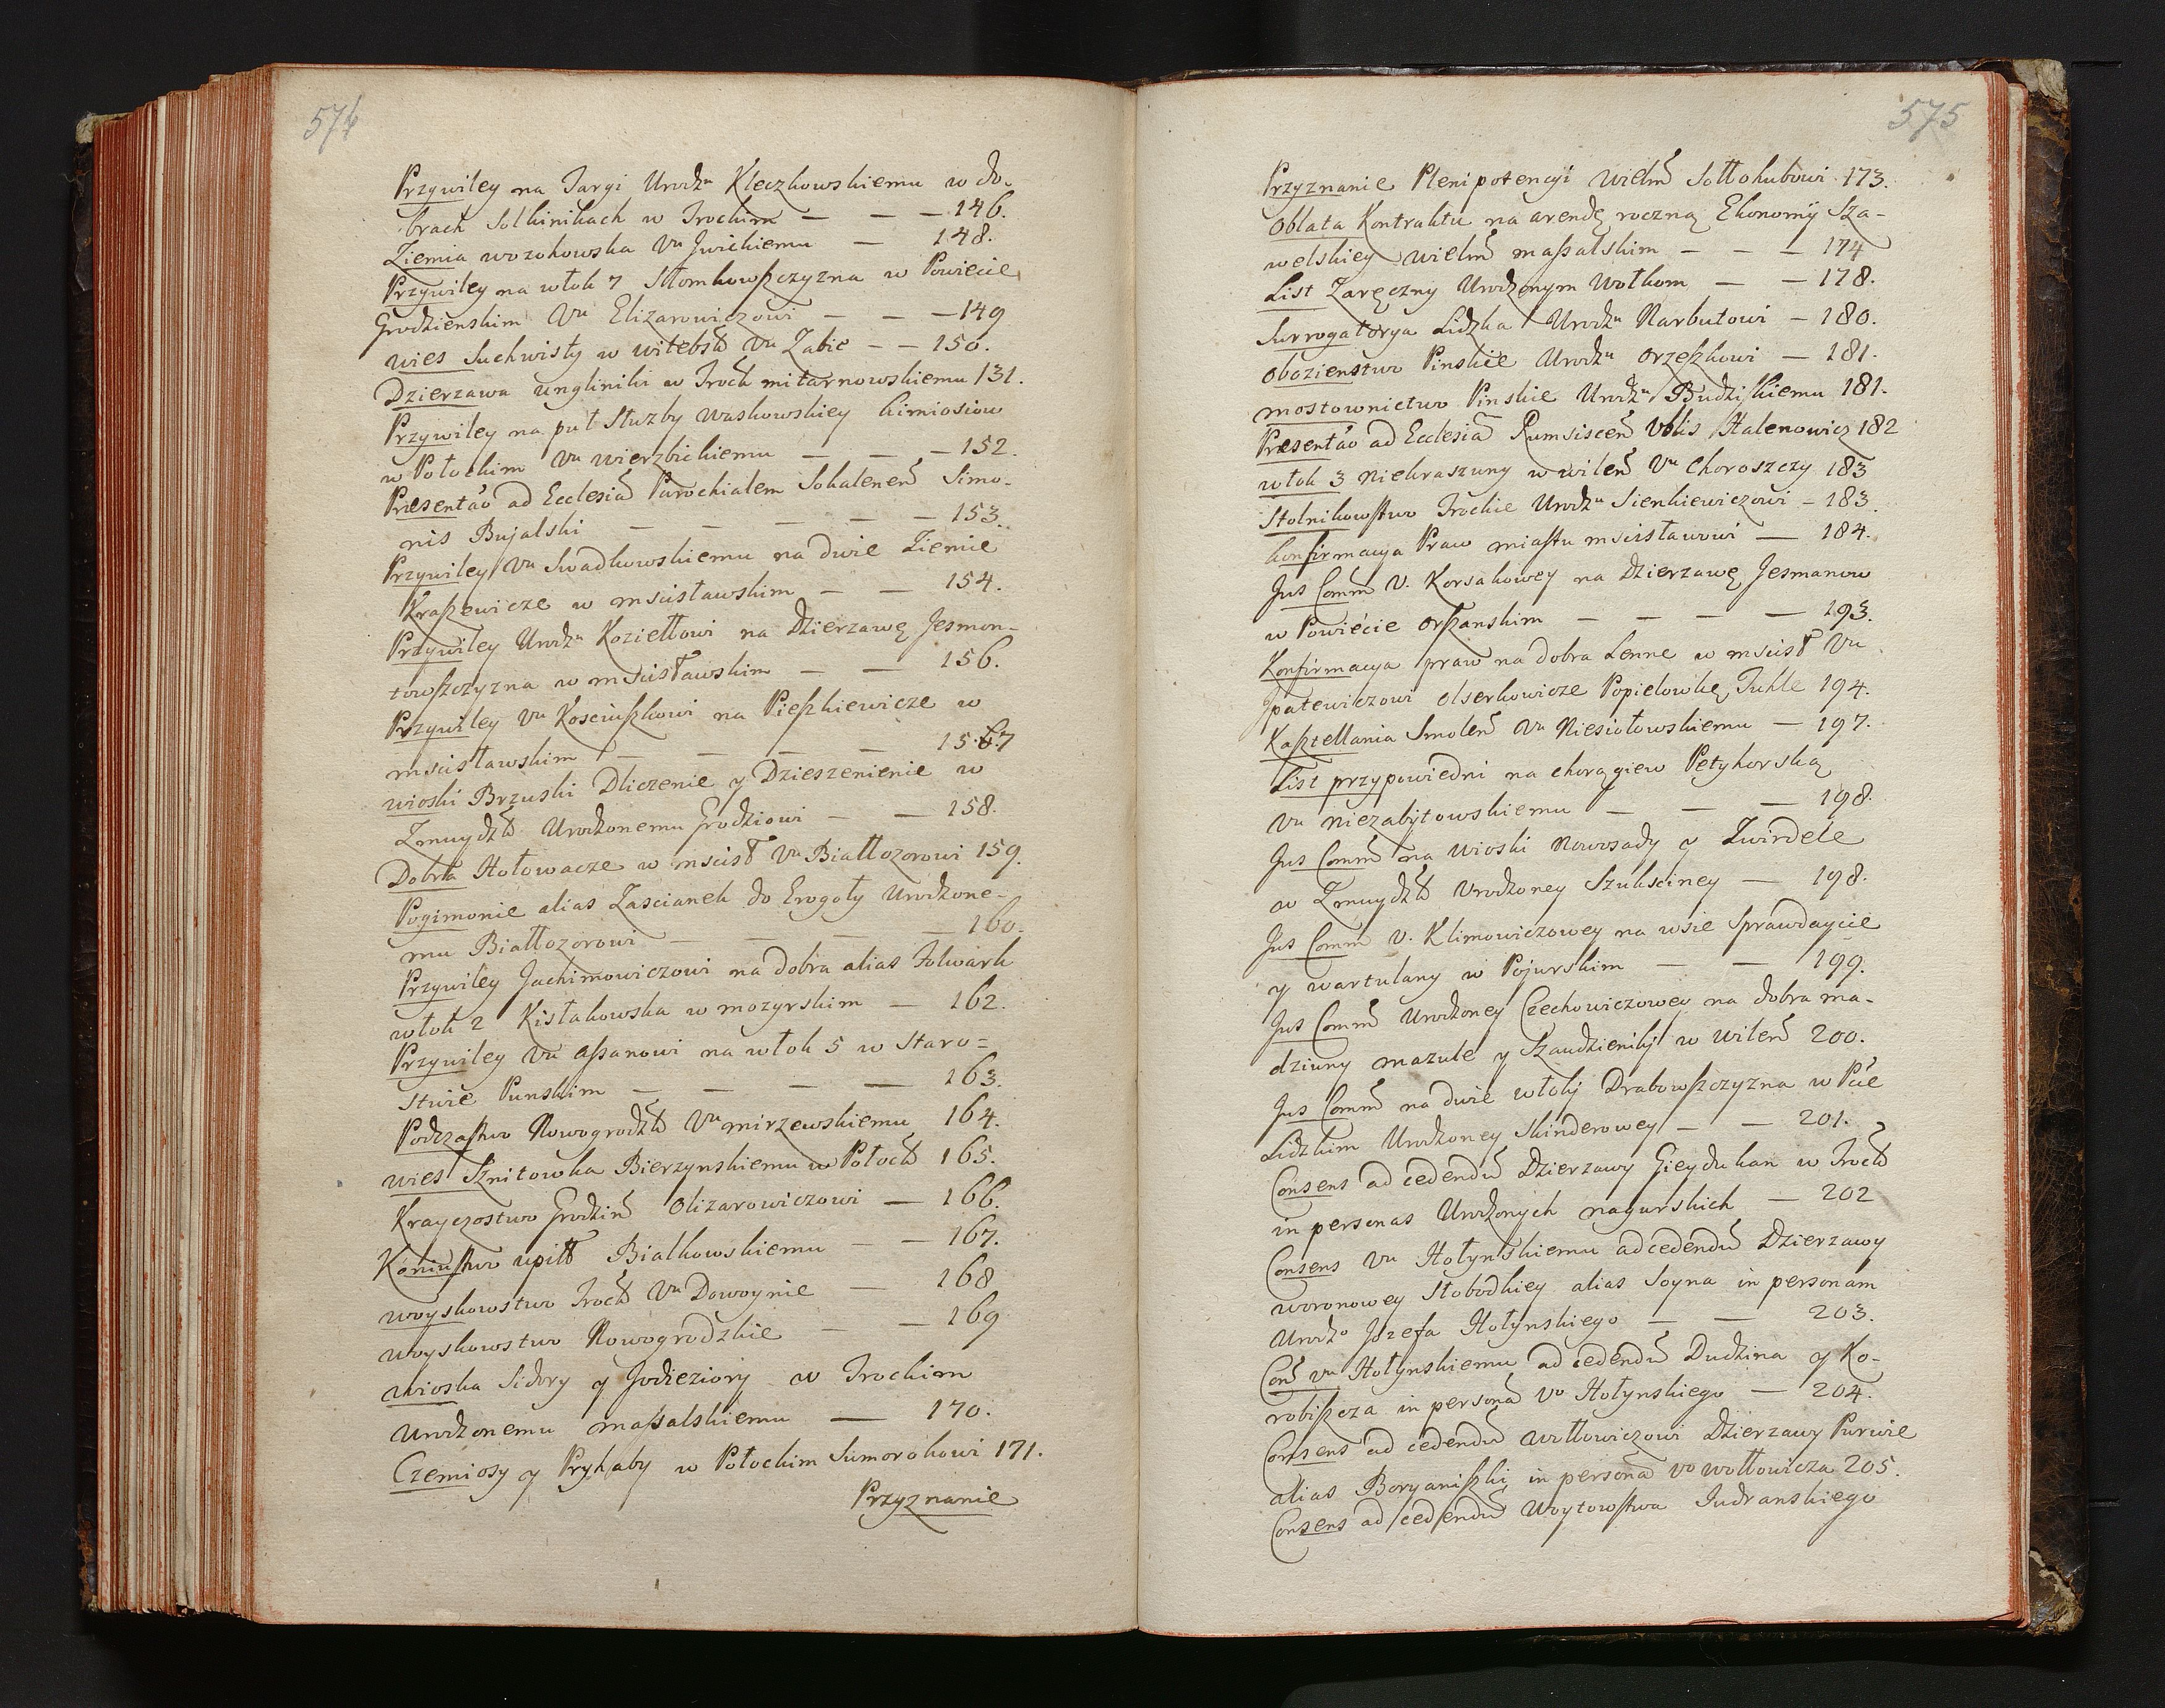 574
Przywiley na Targi Urodzu Kleczkowskiemu w do-
brach Solkinikach w Trockim — — — 146.
Ziemia wozokowska Vu Jwickiemu — 148.
Przywiley na włok 7 Słomkowszczyzna w Powiecie
Grodzienskim Vu Elizarowiczowi — — — 149
wies Suchwisty w witebsk Vu Zabie — — 150.
Dzierzawa ungliniki w Trock mitarnowskiemu 131.
Przywiley na puł Służby waskowskiey himiosiow
w Połockim Vu wierzbickiemu — — — 152.
Præsentao ad Ecclesia Parochialem Sokalenen Simo-
nis Bujalski — — — — — 153.
Przywiley Vu Swadkowskiemu na dwie Ziemie
Kraszewicze w mscisławskim — — 154.
Przywiley Urodzu Koziełłowi na Dzierzawę Jesmon-
towszczyzna w mscisławskim — — 156.
Przywiley Vu Kosciuszkowi na Pieszkiewicze w
mscisławskim — — — — 157
wioski Brzuski Dliczenie y Dzieszenienie w
Zmuydzk Urodzonemu Grodziowi — — 158.
Dobra Hołowacze w mscisł Vu Białłozorowi 159.
Pogimonie alias Zascianek do Erogoły Urodzone-
mu Białłozorowi — — — — 160.
Przywiley Jachimowiczowi na dobra alias Folwark
włok 2 Kisłakowska w mozyrskim — 162.
Przywiley Vu aszanowi na włok 5 w Staro=
stwie Punskim — — — — 163.
Podczastwo Nowogrodzk Vu mirzewskiemu 164.
wies Sznitowka Bierzynskiemu w Połock 165.
Krayczostwo Grodzin Olizarowiczowi — 166.
Koniustwo upitt Białkowskiemu — — 167.
woyskowstwo Trock Vu Dowoynie — 168
woyskowstwo Nowogrodzkie — — 169
wioska Sidory y Jodieziory w Trockim
Urodzonemu massalskiemu — 170.
Czemiosy y Pryhaby w Połockim Sumorokowi 171.
Przyznanie
575
Przyznanie Plenipotencyi wielm Sołłohubowi 173.
Oblata Kontraktu na arendę roczną Ekonomij Sza-
welskiey wielm massalskim — — — 174
List Zaręczny Urodzonym wołkom — — 178.
Surrogatorya Lidzka Urodzu Narbutowi — 180.
Obozienstwo Pinskie Urodzu orzeszkowi — 181.
mostownictwo Pinskie Urodzu Budziskiemu 181.
Præsentao ad Ecclesia Rumsiscen Vblis Stalenowicz 182
włok 3 Niekraszuny w wilen Vu Choroszczy 183
Stolnikowstwo Trockie Urodzu Sienkiewiczowi — 183.
konfirmacya Praw miastu mscisławowi — 184.
Jus Comm V. Korsakowey na Dzierzawę Jesmanow
w Powiecie Orszanskim — — — — 193.
Konfirmacya praw na dobra Lenne w mscisł Vu
Jpatewiczowi Olserkowicze Popielowkę Tuhle 194.
Kasztellania Smolen Vu Niesiołowskiemu — 197.
List przypowiedni na chorągiew Petyhorską
Vu niezabytowskiemu — — — 198.
Jus Comm na wioski Nowosady y Zwirdele
w Zmuydzk Vrodzoney Szukscinej — 198.
Jus Comm V. Klimowiczowey na wsie Sprawdaycie
y wartulany w Pojurskim — — 199.
Jus Comm Urodzoney Czechowiczowey na dobra ma-
dziuny mazule y Szaudzieniki w wilen 200.
Jus Comm na dwie włoki Drabowszczyzna w Pcie
Lidzkim Urodzoney Skinderowey — — 201.
Consens ad cedendu Dzierzawy Gieydukan w Trock
in personas Urodzonych nagurskich — 202
Consens Vu Hołynskiemu ad cedendu Dzierzawy
woronowey Słobodkiey alias Soyna in personam
Urodzo Jozefa Hołynskiego — — 203.
Cons vu Hołynskiemu ad cedendu Dudzina y Ko-
robiszcza in persona Vo Hołynskiego — 204.
Consens ad cedendu wołłowiczowi Dzierzawy Purwie
alias Boryaniszki in persona Vo wołłowicza 205.
Consens ad cedendu Woytowstwa Judranskiego